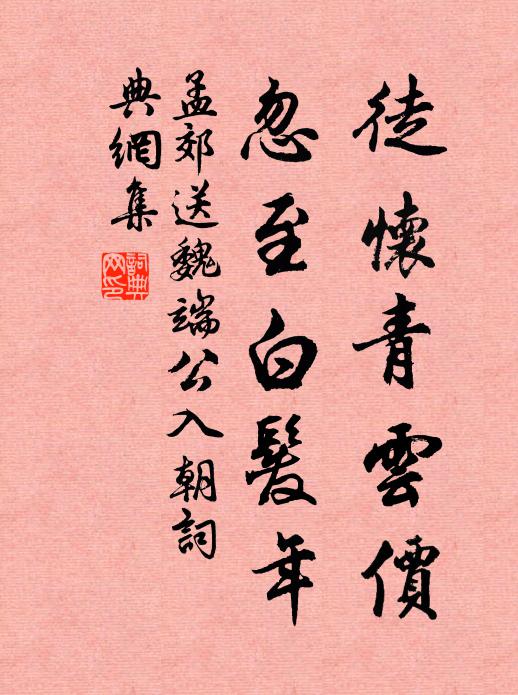 徒懷青雲價
忽至白髮年
孟郊送魏端公入朝詞
典網集
詞典
网印